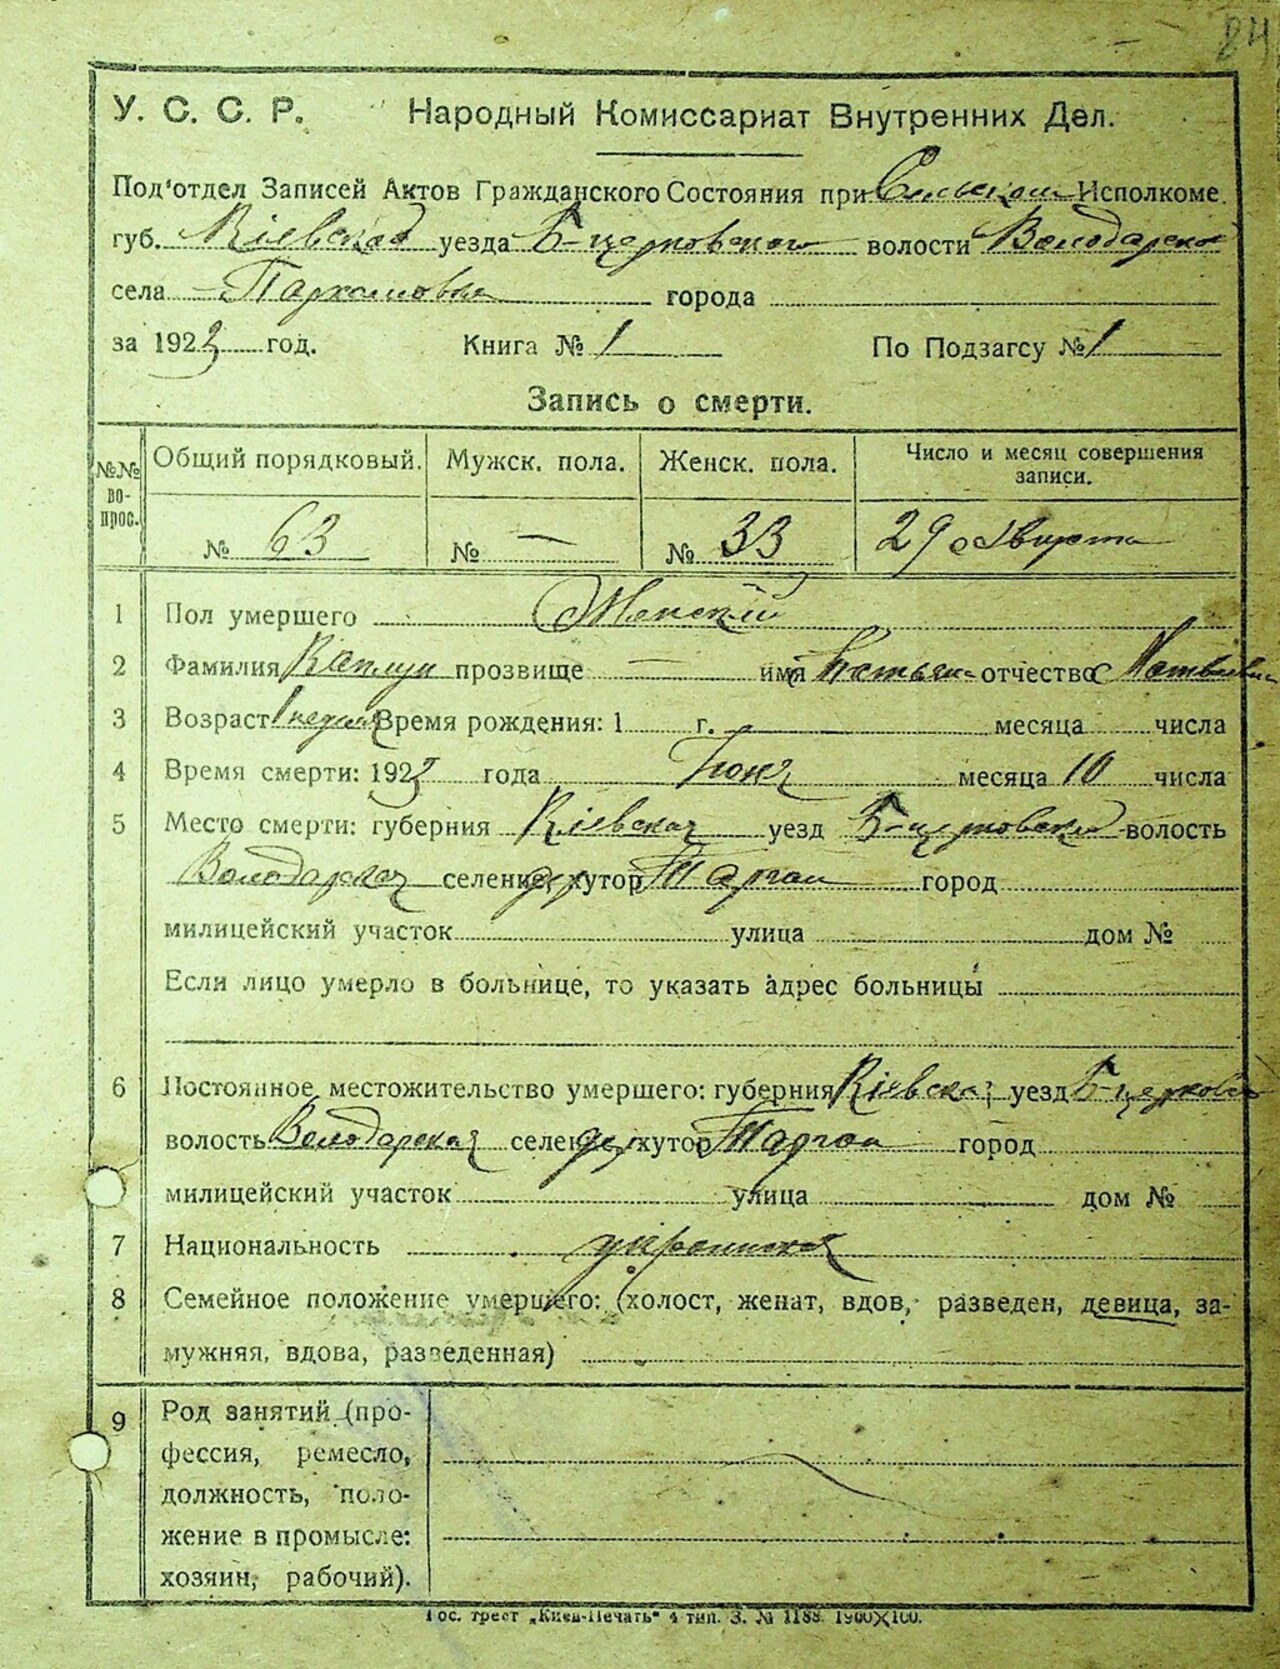 84
У. С. С. Р. Народный Комиссариат Внутренних Дел.
Под'отдел Записей Актов Гражданского Состояния при Сельском Исполкоме
губ. Кіевской уезда Б-церковского волости Володарской
села города
за 1923 год. Книга № 1 По Подзагсу № 1
Запись о смерти.
№№ во- прос. Общий порядковый. Мужск. пола. Женск. пола. Число и месяц совершения записи.
№ 63 № — № 33 29 Августа
1 Пол умершего Женскій
2 Фамилия Каплун прозвище — имя Татьяна отчество Матвеевна
3 Возраст 1 неделя Время рождения: 1 г. месяца числа
4 Время смерти: 1923 года месяца 10 числа
5 Место смерти: губерния Кіевская уезд Б-церковский волость
Володарская селение, хутор Тарган город
милицейский участок улица дом №
Если лицо умерло в больнице, то указать адрес больницы
6 Постоянное местожительство умершего: губерния Кіевская уезд Б-церков
волость Володарская селение, хутор Тарган город
милицейский участок улица дом №
7 Национальность украинская
8 Семейное положение умершего: (холост, женат, вдов, разведен, девица, за-
мужняя, вдова, разведенная)
9 Род занятий (про-
фессия, ремесло,
должность, поло-
жение в промысле:
хозяин, рабочий).
Гос. трест „Киев-Печать“ 4 тип. З. № 1188. 1900X100.